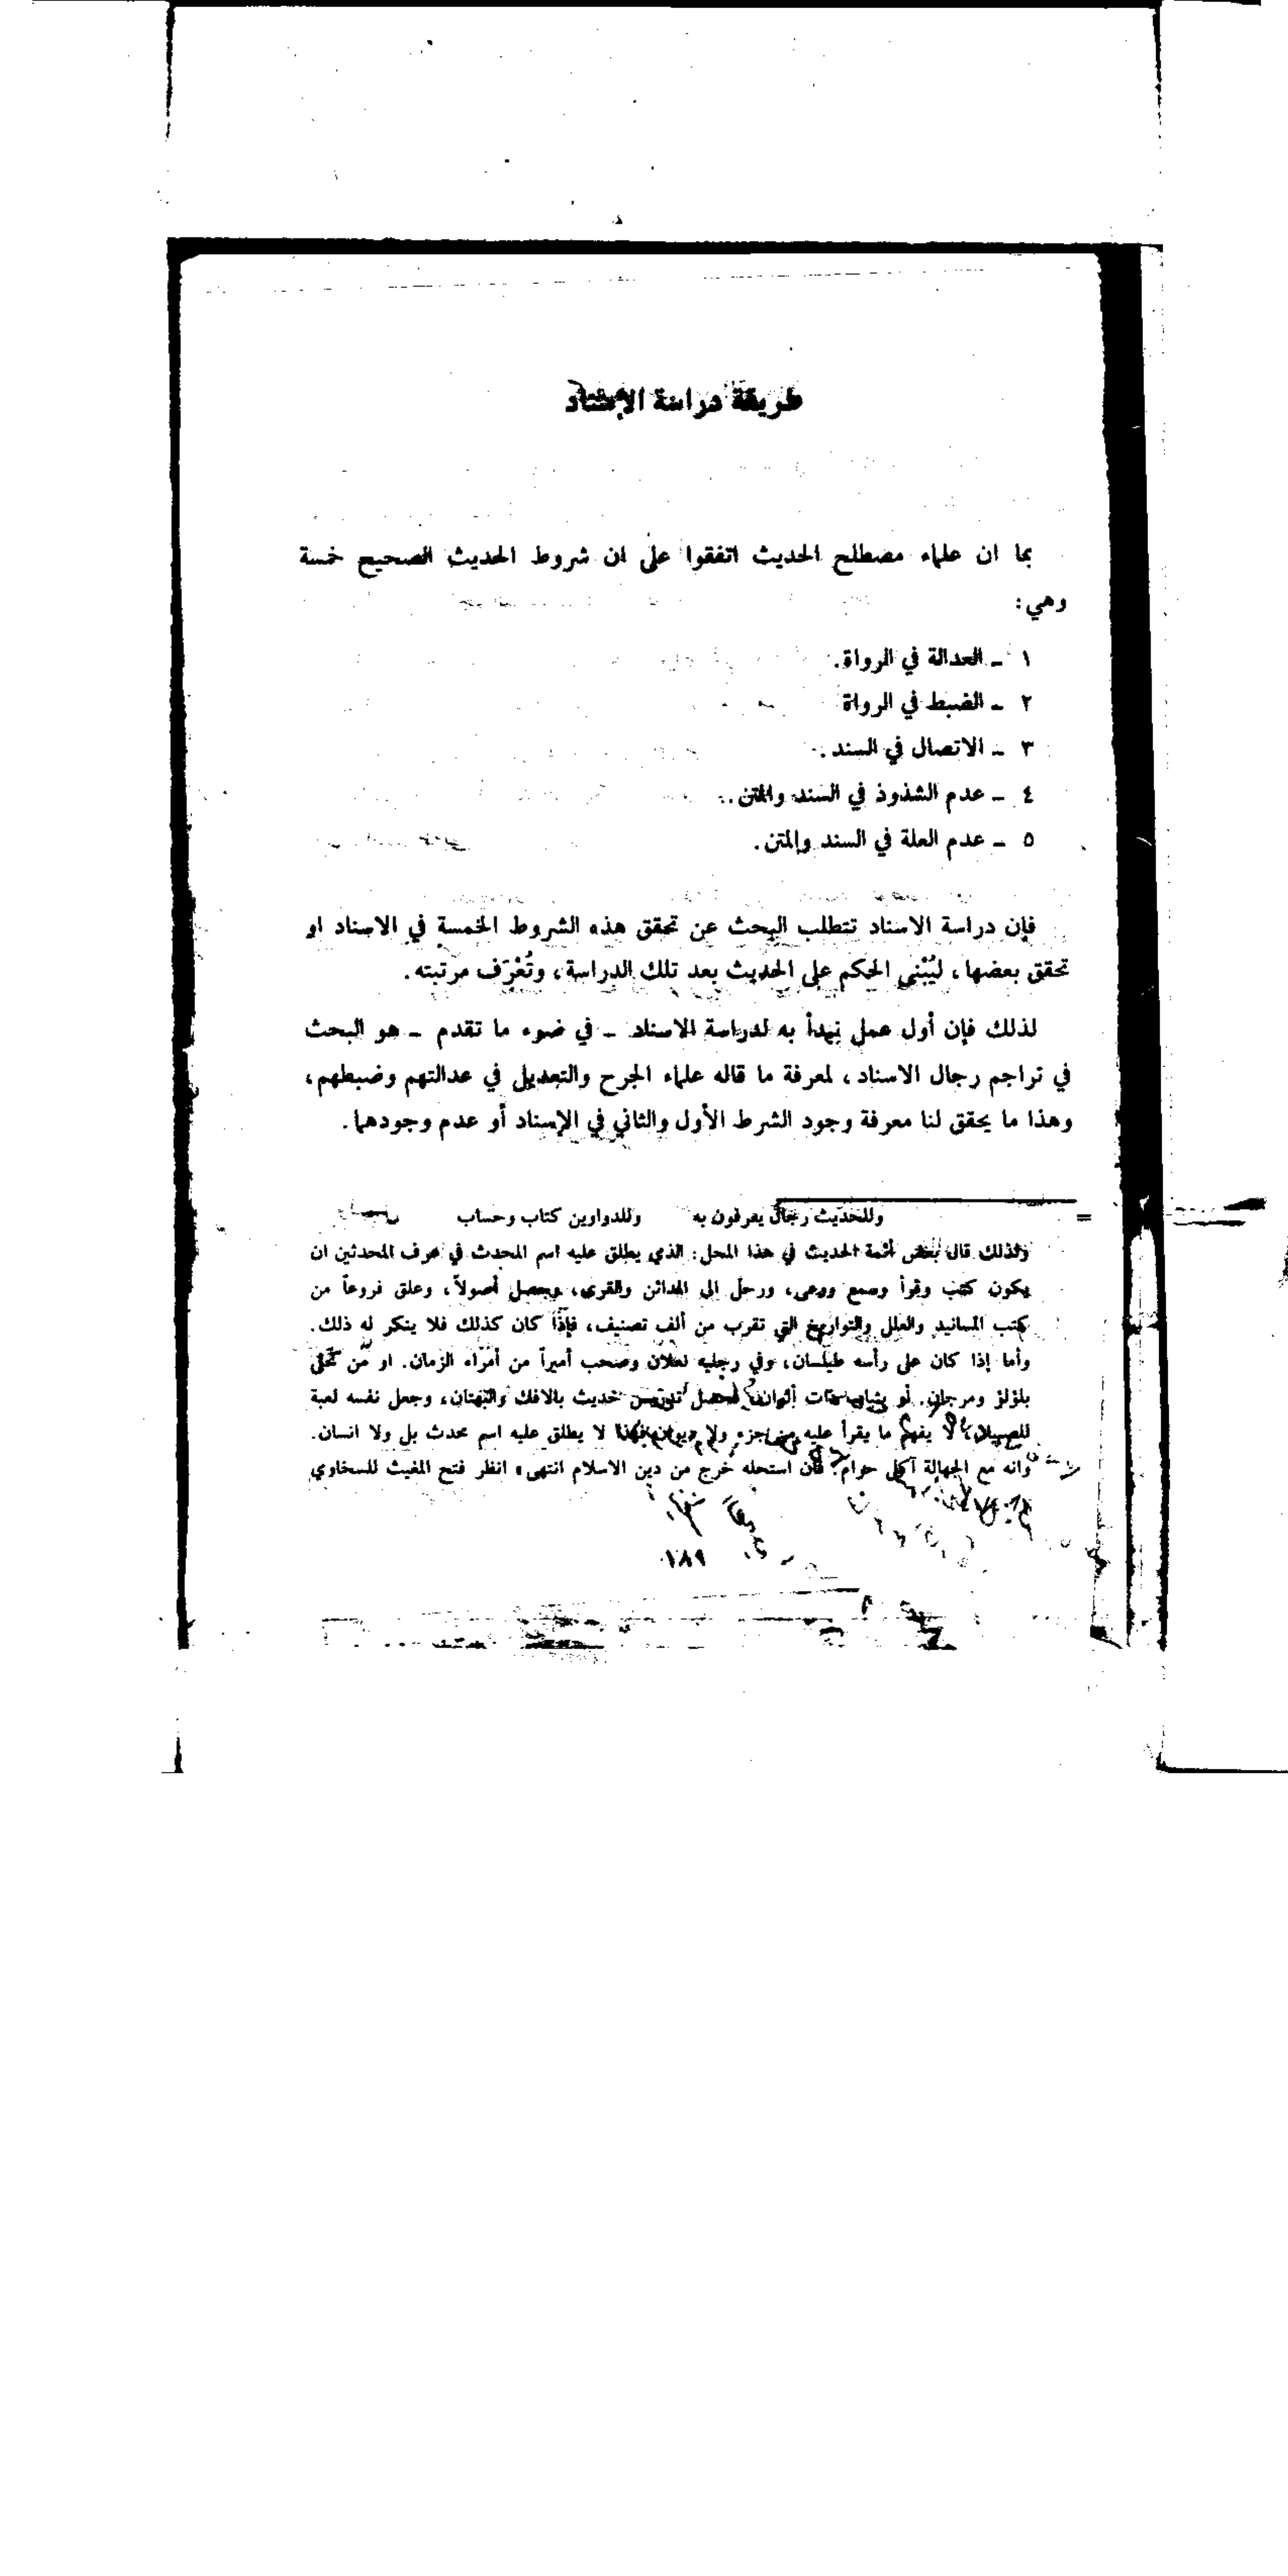 طريقة دراسة الإسناد
بما ان علماء مصطلح الحديث اتفقوا على ان شروط الحديث الصحيح خمسة
وهي:
١ - العدالة في الرواة.
٢ - الضبط في الرواة
٣ - الاتصال في السند.
٤ - عدم الشذوذ في السند والمتن.
٥ - عدم العلة في السند والمتن.
فإن دراسة الاسناد تتطلب البحث عن تحقق هذه الشروط الخمسة في الاسناد او
تحقق بعضها، ليُبْنى الحكم على الحديث بعد تلك الدراسة، وتُعْرَف مرتبته.
لذلك فإن أول عمل نبدأ به لدراسة الاسناد - في ضوء ما تقدم - هو البحث
في تراجم رجال الاسناد، لمعرفة ما قاله علماء الجرح والتعديل في عدالتهم وضبطهم،
وهذا ما يحقق لنا معرفة وجود الشرط الأول والثاني في الإسناد أو عدم وجودهما.
= وللحديث رجال يعرفون به وللدواوين كتاب وحساب
ولذلك قال بعض أئمة الحديث في هذا المحل: الذي يطلق عليه اسم المحدث في عرف المحدثين ان
يكون كتب وقرأ وسمع ووعى، ورحل الى المدائن والقرى، وحصل أصولاً، وعلق فروعاً من
كتب المسانيد والعلل والتواريخ التي تقرب من ألف تصنيف، فإذا كان كذلك فلا ينكر له ذلك.
وأما إذا كان على رأسه طيلسان، وفي رجليه نعلان وصحب أميراً من أمراء الزمان. او من تحلى
بلؤلؤ ومرجان. أو بثياب ذات ألوان، فحصل تدريس حديث بالافك والبهتان، وجعل نفسه لعبة
للصبيان، لا يفهم ما يقرأ عليه من جزء ولا ديوان، فهذا لا يطلق عليه اسم محدث بل ولا انسان.
وانه مع الجهالة آكل حرام. فان استحله خرج من دين الاسلام انتهى» انظر فتح المغيث للسخاوي
١٨٩